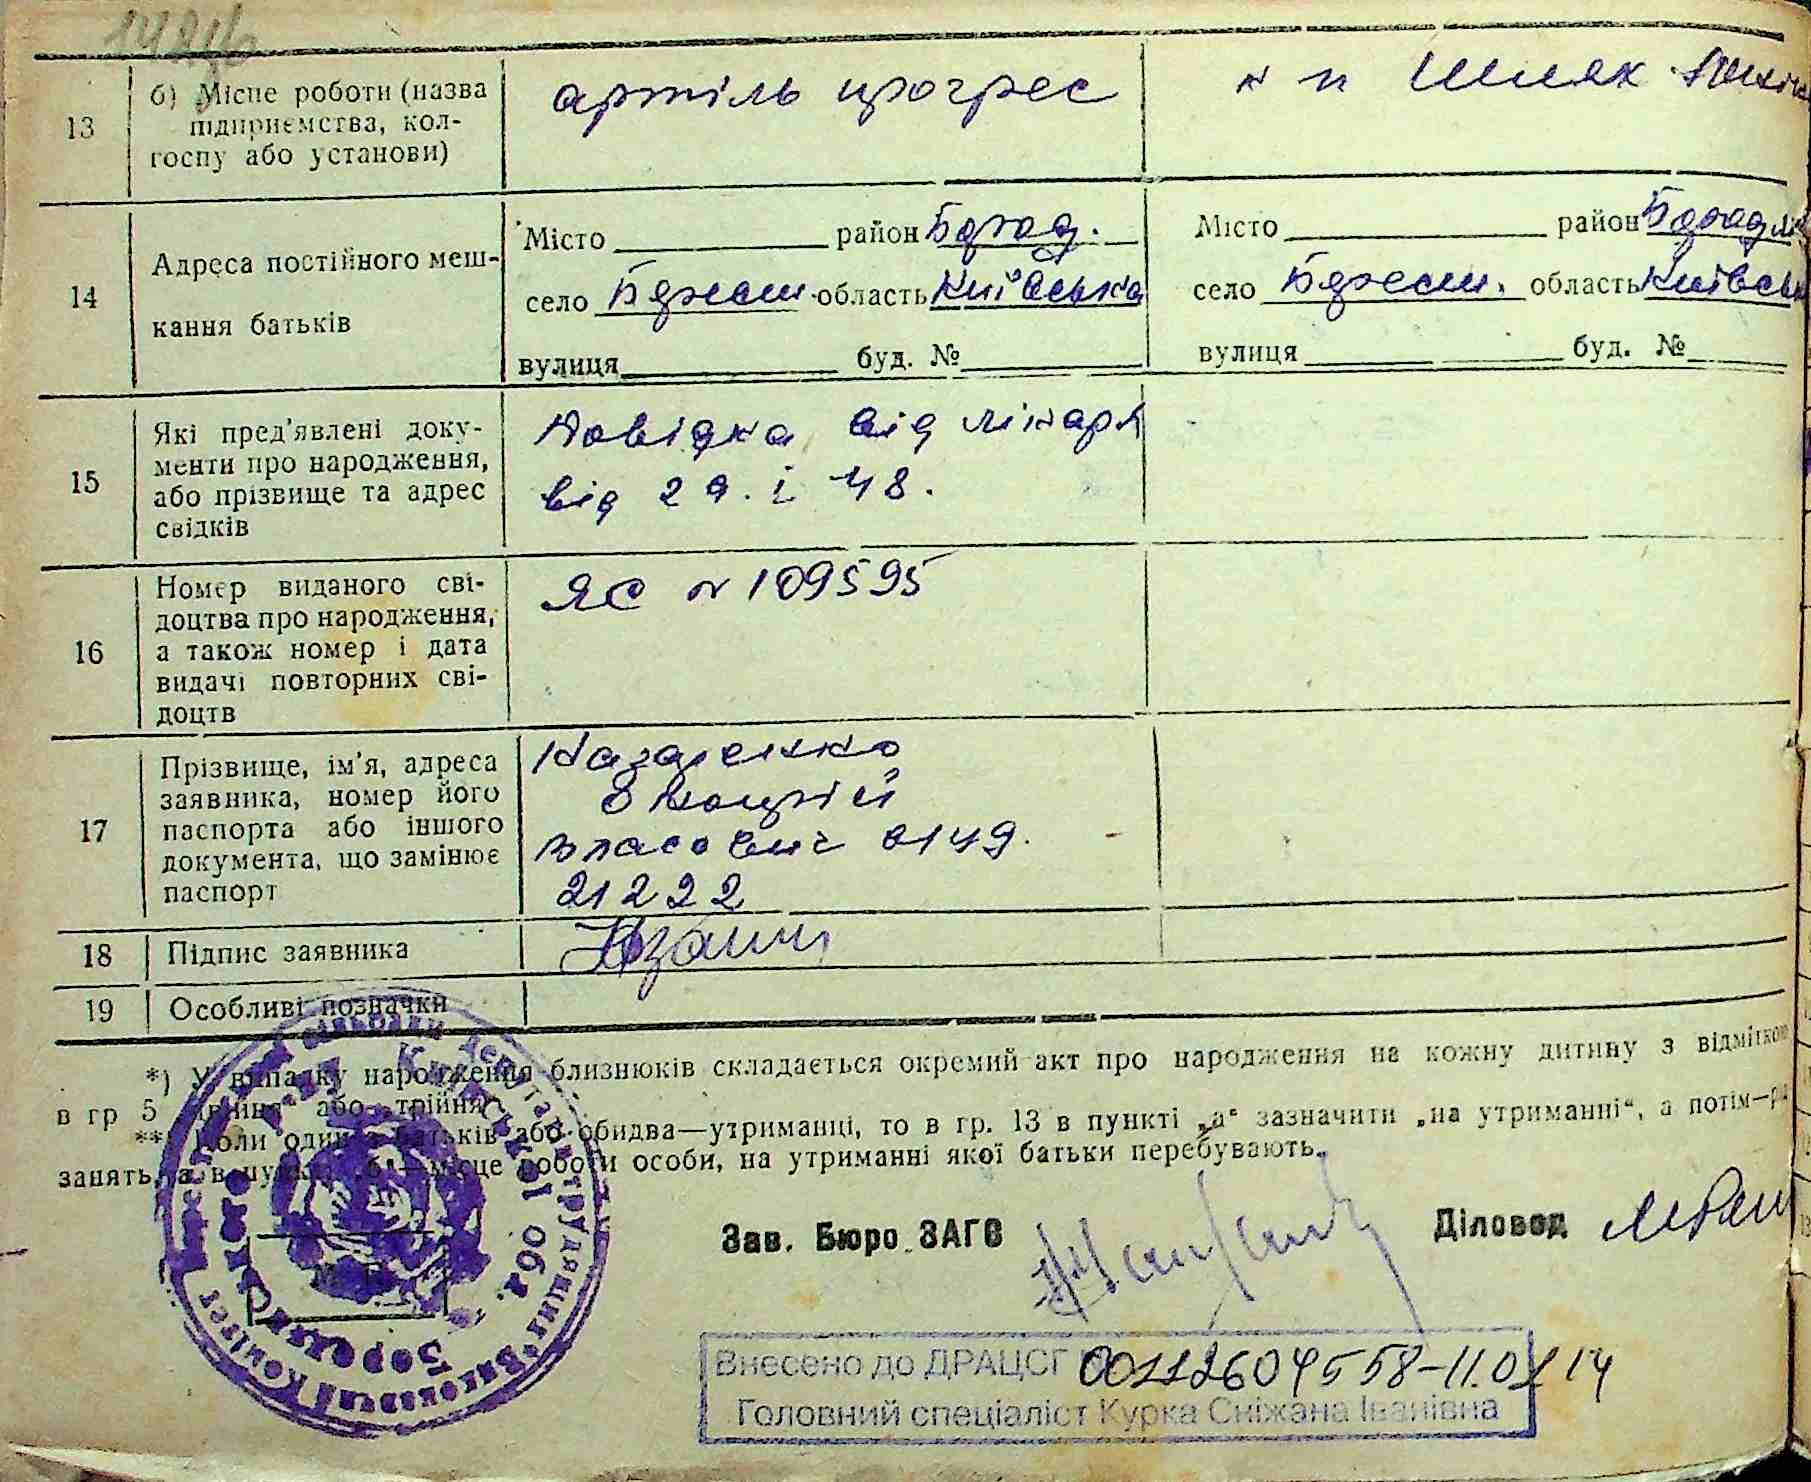 13
б) Місце роботи (назва
підприємства, кол-
госпу або установи)
артіль прогрес
к п Шлях
14
Адреса постійного меш-
кання батьків
Місто район
село область Київська
вулиця буд. №
Місто район
село область
вулиця буд. №
15
Які пред'явлені доку-
менти про народження,
або прізвище та адрес
свідків
Довідка від лікаря
від 29. і 48.
16
Номер виданого сві-
доцтва про народження,
а також номер і дата
видачі повторних сві-
доцтв
ЯС № 109595
17
Прізвище, ім'я, адреса
заявника, номер його
паспорта або іншого
документа, що замінює
паспорт
Назаренко
Власович 0149.
21222
18
Підпис заявника
19
Особливі позначки
*) У випадку народження близнюків складається окремий акт про народження на кожну дитину з відміткою
в гр 5 „двійня“ або „трійня“.
**) Коли один з батьків або обидва—утриманці, то в гр. 13 в пункті „а“ зазначити „на утриманні“, а потім—
занять, а в пункті „б“—місце роботи особи, на утриманні якої батьки перебувають.
Київської обл.
Виконавчий Комітет
Зав. Бюро ЗАГС
Діловод
Внесено до ДРАЦСГ 00112604558-11.01.14
Головний спеціаліст Курка Сніжана Іванівна